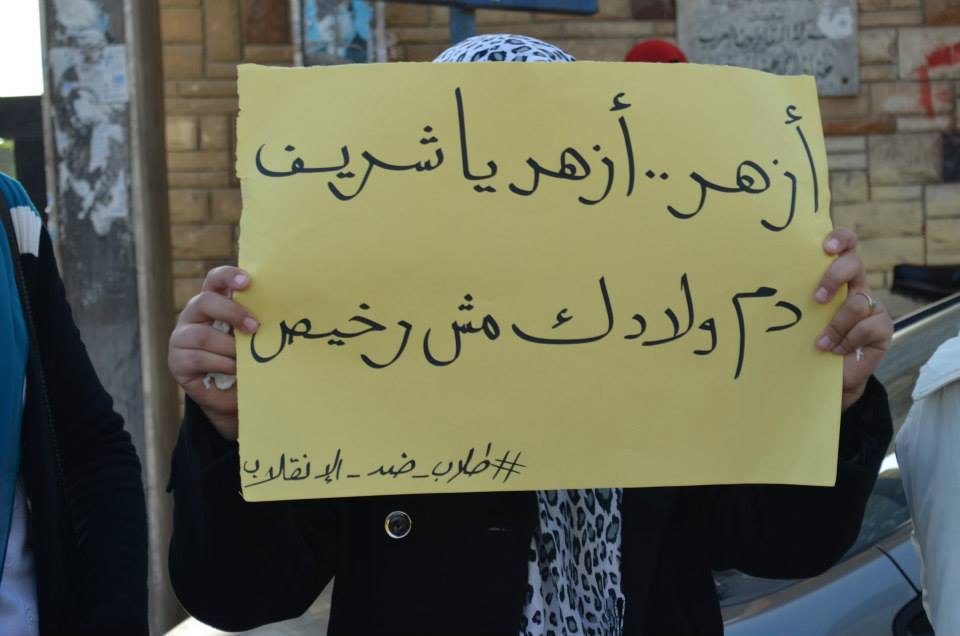 أزهر .. أزهر يا شريف
دم ولادك مش رخيص
#طلاب_ضد_الإنقلاب